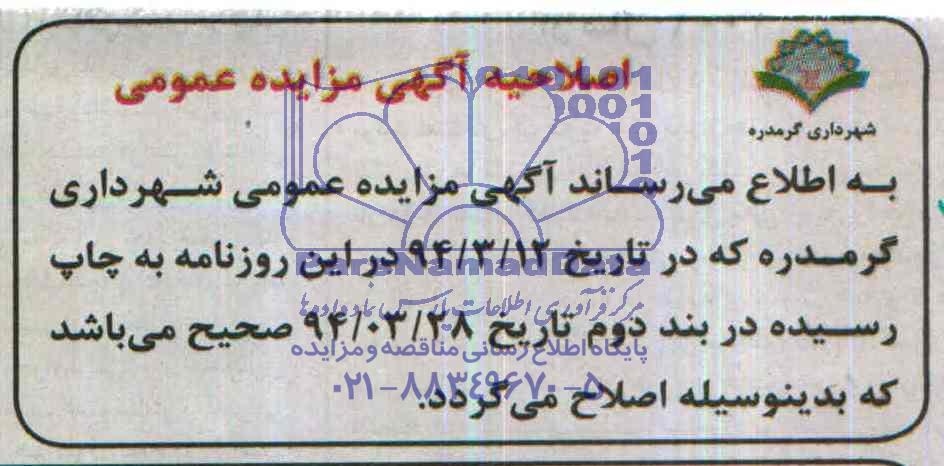 اصلاحیه آگهی مزایده عمومی
شهرداری گرمدره
به اطلاع می‌رساند آگهی مزایده عمومی شهرداری
گرمدره که در تاریخ ۹۴/۳/۱۲ در این روزنامه به چاپ
رسیده در بند دوم تاریخ ۹۴/۰۳/۲۸ صحیح می‌باشد
که بدینوسیله اصلاح می‌گردد.
ParsNamadData
مرکز فرآوری اطلاعات پارس نماد داده‌ها
پایگاه اطلاع رسانی مناقصه و مزایده
۰۲۱-۸۸۳۴۹۶۷۰-۵